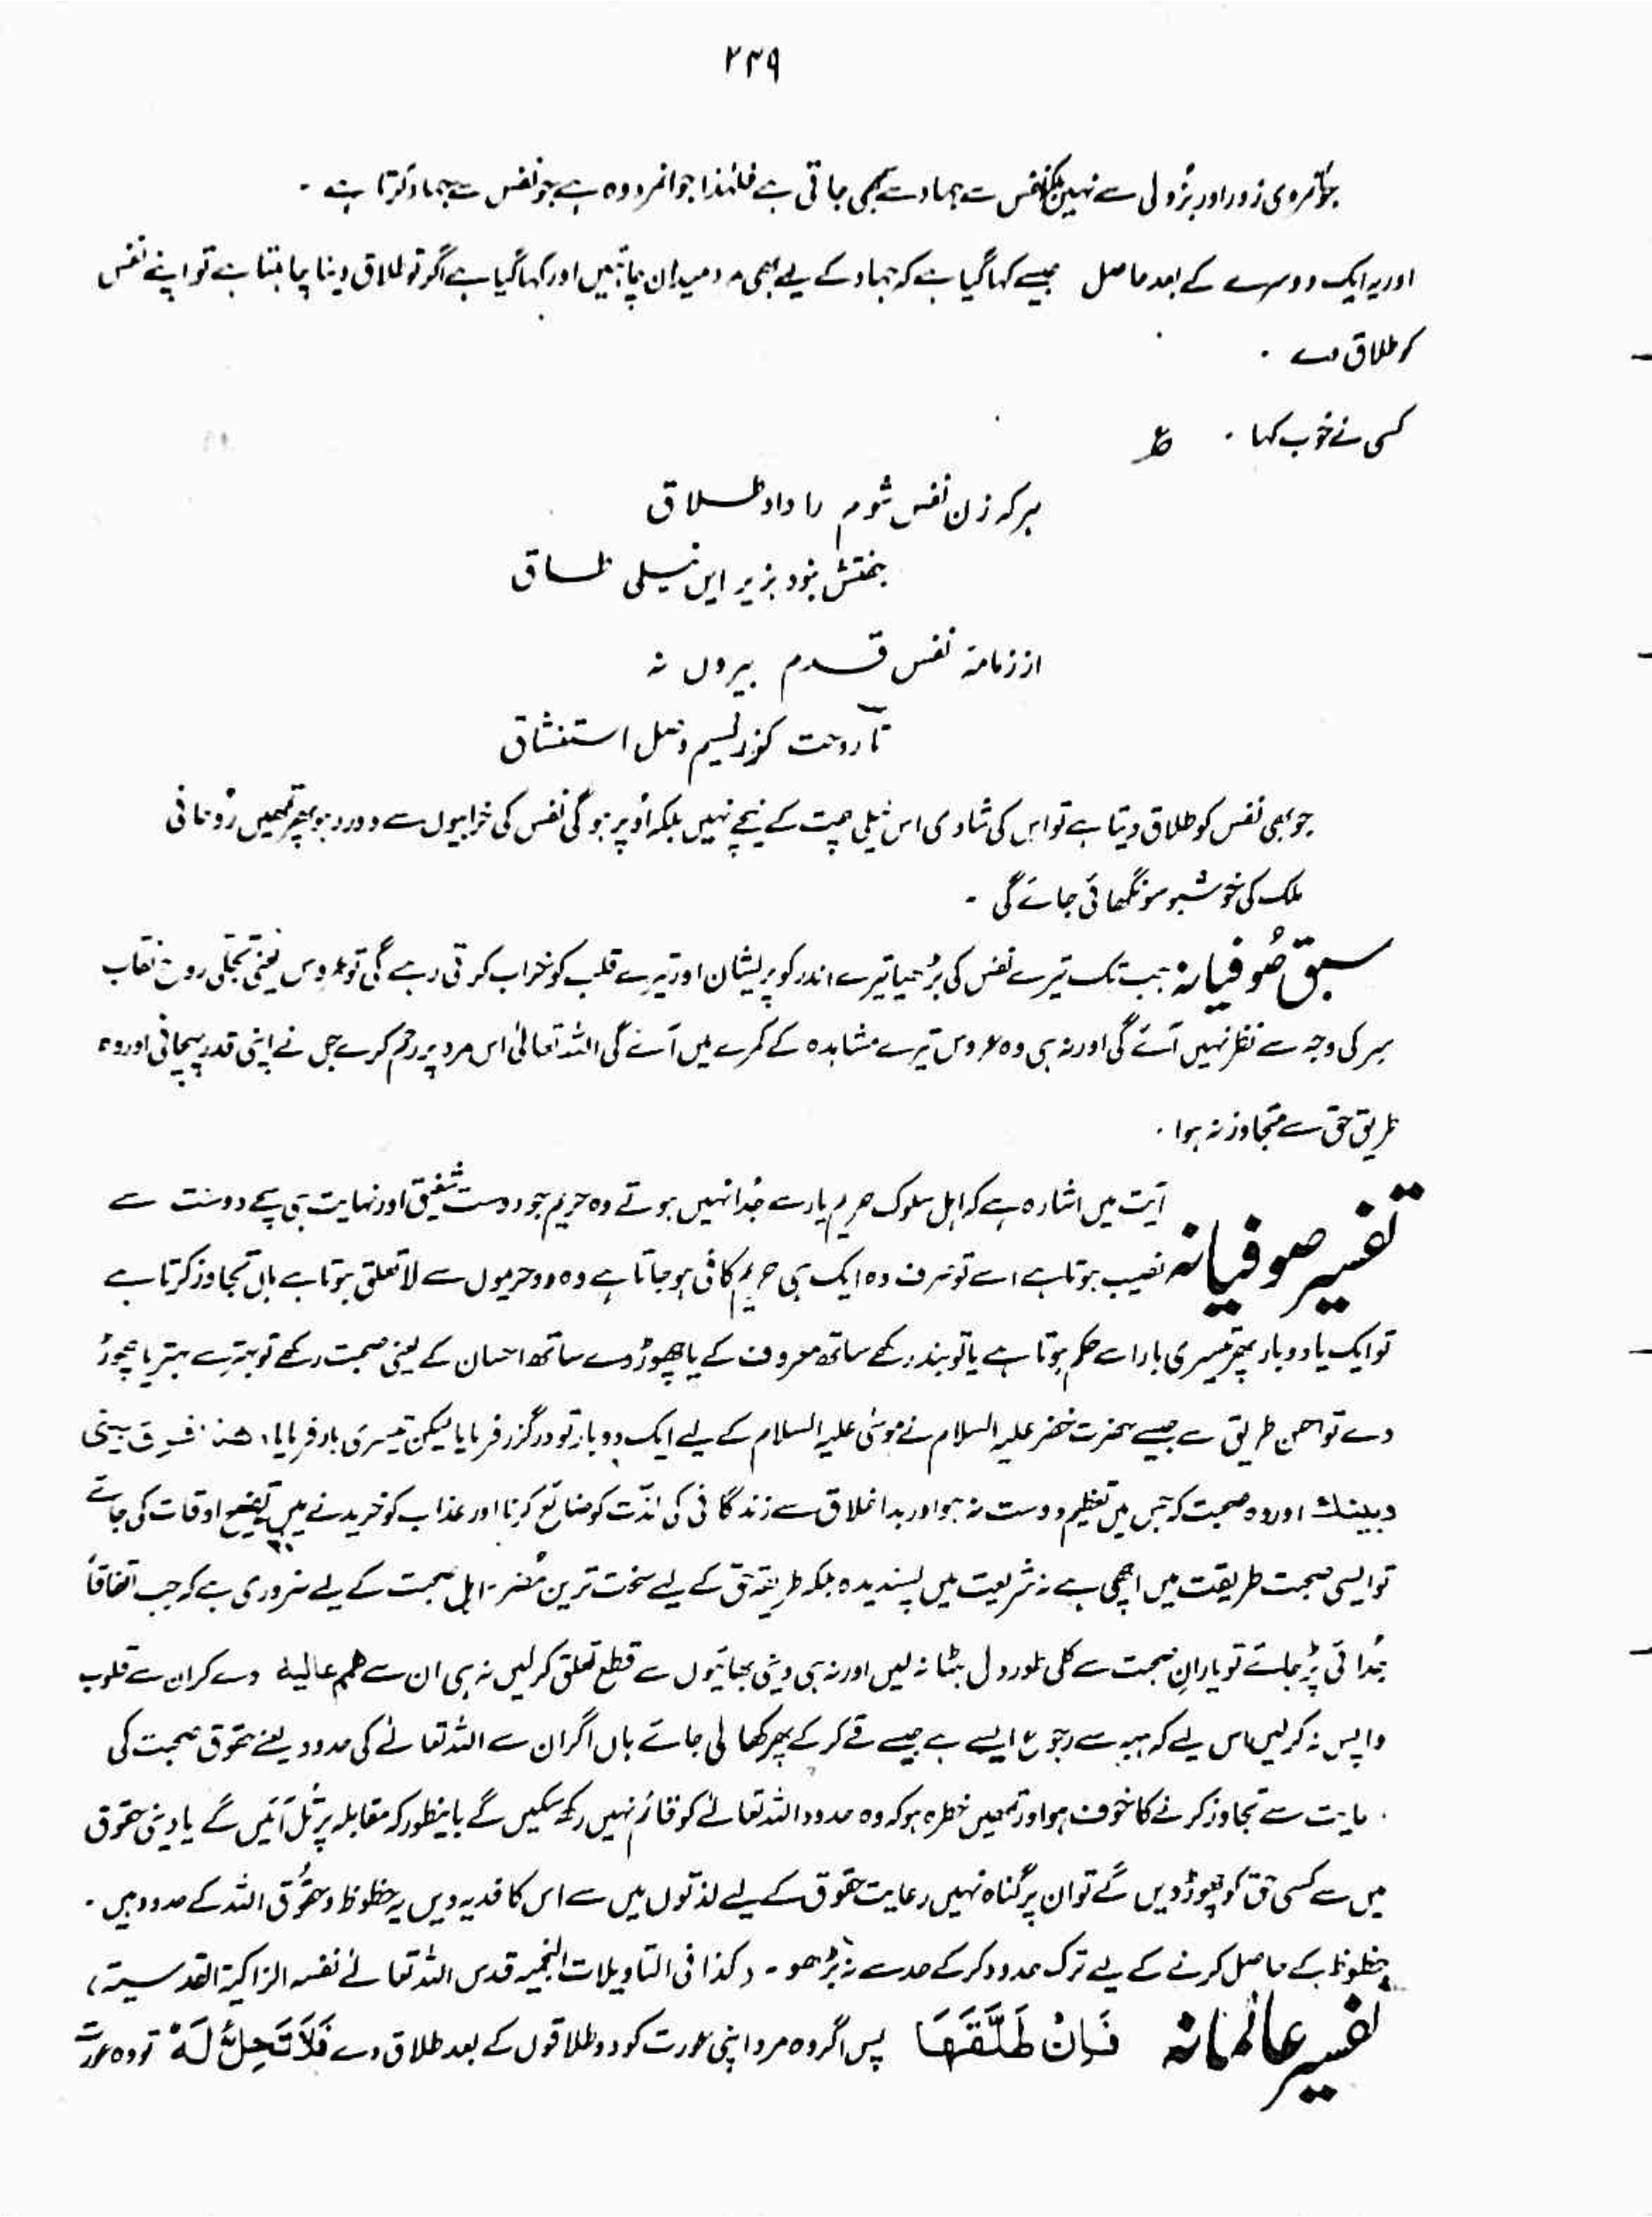 ۲۳۹
جوانمردی زور اور بزدلی سے نہیں بلکہ نفس سے جہاد سے سمجھی جاتی ہے فلہٰذا جوانمرد وہ ہے جو نفس سے جہاد کرتا ہے ۔
اور یہ ایک دوسرے کے بعد حاصل جیسے کہا گیا ہے کہ جہاد کے لیے بھی مردمیدان چاہئیں اور کہا گیا ہے اگر تو طلاق دینا چاہتا ہے تو اپنے نفس
کو طلاق دے ۔
کسی نے خوب کہا ۔ ؏
ہرکہ زن نفس شوم را داد طلاق
جفتش نبود بزیر ایں نیلی طاق
از زمانۂ نفس قدم بیروں نہ
تا روحت کند نسیم وصل استنشاق
جو بھی نفس کو طلاق دیتا ہے تو اس کی شادی اس نیلی چھت کے نیچے نہیں بلکہ اُوپر ہو گی نفس کی خرابیوں سے دور ہو پھر تمھیں رُوحانی
ملک کی خوشبو سونگھائی جائے گی ۔
سبق صُوفیانہ جب تک تیرے نفس کی بُڑھیا تیرے اندر کو پریشان اور تیرے قلب کو خراب کرتی رہے گی تو عروس یعنی تجلّی روح نقاب
سر کی وجہ سے نظر نہیں آئے گی اور نہ ہی وہ عروس تیرے مشاہدہ کے کمرے میں آئے گی اللہ تعالیٰ اس مرد پر رحم کرے جس نے اپنی قدر پہچانی اور وہ
طریق حق سے متجاوز نہ ہوا ۔
آیت میں اشارہ ہے کہ اہل سلوک حریم یار سے جُدا نہیں ہوتے وہ حریم جو دوست شفیق اور نہایت ہی سچے دوست سے
تفسیر صوفیانہ نصیب ہوتا ہے اسے تو صرف وہ ایک ہی حریم کافی ہو جاتا ہے وہ دو حرموں سے لا تعلق ہوتا ہے ہاں تجاوز کرتا ہے
تو ایک یا دو بار پھر تیسری بار اسے حکم ہوتا ہے یا تو بند رکھے ساتھ معروف کے یا چھوڑ دے ساتھ احسان کے یعنی صحبت رکھے تو بہتر سے بہتر یا چھوڑ
دے تو احسن طریق سے جیسے حضرت خضر علیہ السلام نے موسیٰ علیہ السلام کے لیے ایک دو بار تو درگزر فرمایا لیکن تیسری بار فرمایا، ھذا فراق بینی
وبینك اور وہ صحبت کہ جس میں تعظیم دوست نہ ہو اور بداخلاق سے زندگانی کی لذّت کو ضائع کرنا اور عذاب کو خریدنے میں تضیع اوقات کی جائے
تو ایسی صحبت طریقت میں اچھی ہے نہ شریعت میں پسندیدہ بلکہ طریقہ حق کے لیے سخت ترین مُضر ۔ اہل صحبت کے لیے ضروری ہے کہ جب اتفاقاً
جُدائی پڑ جائے تو یارانِ صحبت سے کلی طور دل ہٹا نہ لیں اور نہ ہی دینی بھائیوں سے قطع تعلق کر لیں نہ ہی ان سے ھمم عالیہ دے کر ان سے قلوب
واپس نہ کر لیں اس لیے کہ ہبہ سے رجوع ایسے ہے جیسے قے کر کے پھر کھا لی جائے ہاں اگر ان سے اللہ تعالےٰ کی حدود یعنے حقوق صحبت کی
رعایت سے تجاوز کرنے کا خوف ہو اور تمھیں خطرہ ہو کہ وہ حدود اللہ تعالےٰ کو قائم نہیں رکھ سکیں گے باینطور کہ مقابلہ پر تُل آئیں گے یا دینی حقوق
میں سے کسی حق کو چھوڑ دیں گے تو ان پر گناہ نہیں رعایت حقوق کے لیے لذتوں میں سے اس کا فدیہ دیں یہ حظوظ و حقُوق اللہ کے حدود ہیں ۔
حظوظ کے حاصل کرنے کے لیے ترک حدود کر کے حد سے نہ بڑھو ۔ (کذا فی التاویلات النجمیہ قدس اللہ تعالےٰ نفسہ الزاکیۃ القدسیۃ)
تفسیر عالمانہ فَاِنْ طَلَّقَهَا پس اگر وہ مرد اپنی عورت کو دو طلاقوں کے بعد طلاق دے فَلَا تَحِلُّ لَهٗ تو وہ عورت